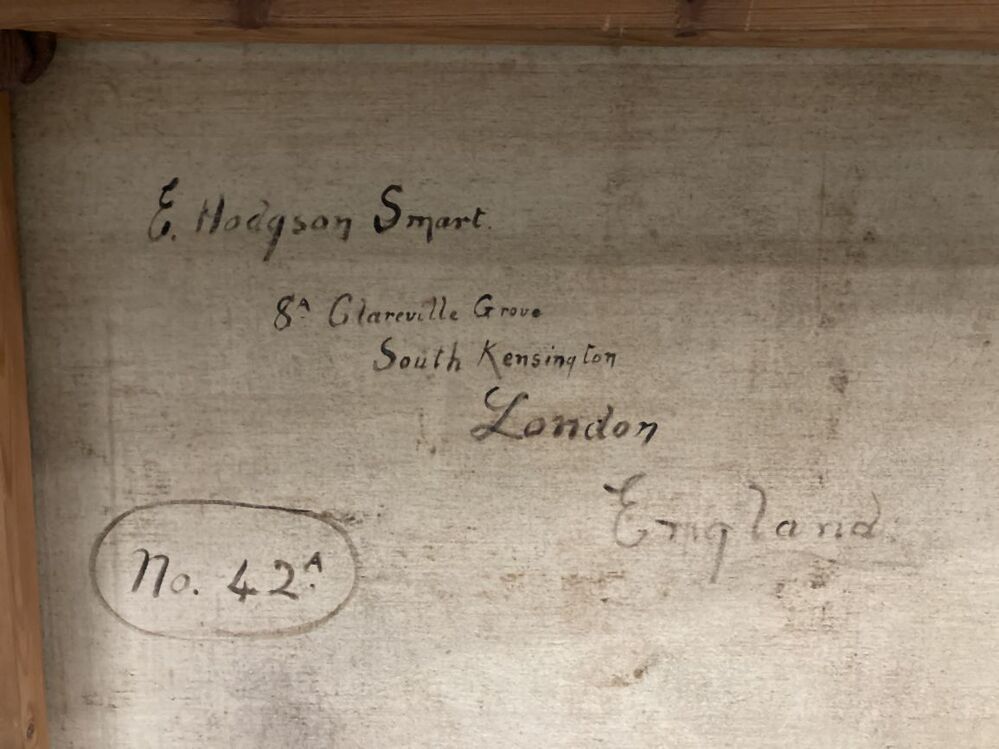 E. Hodgson Smart.
8A Clareville Grove
South Kensington
London
England.
No. 42A.